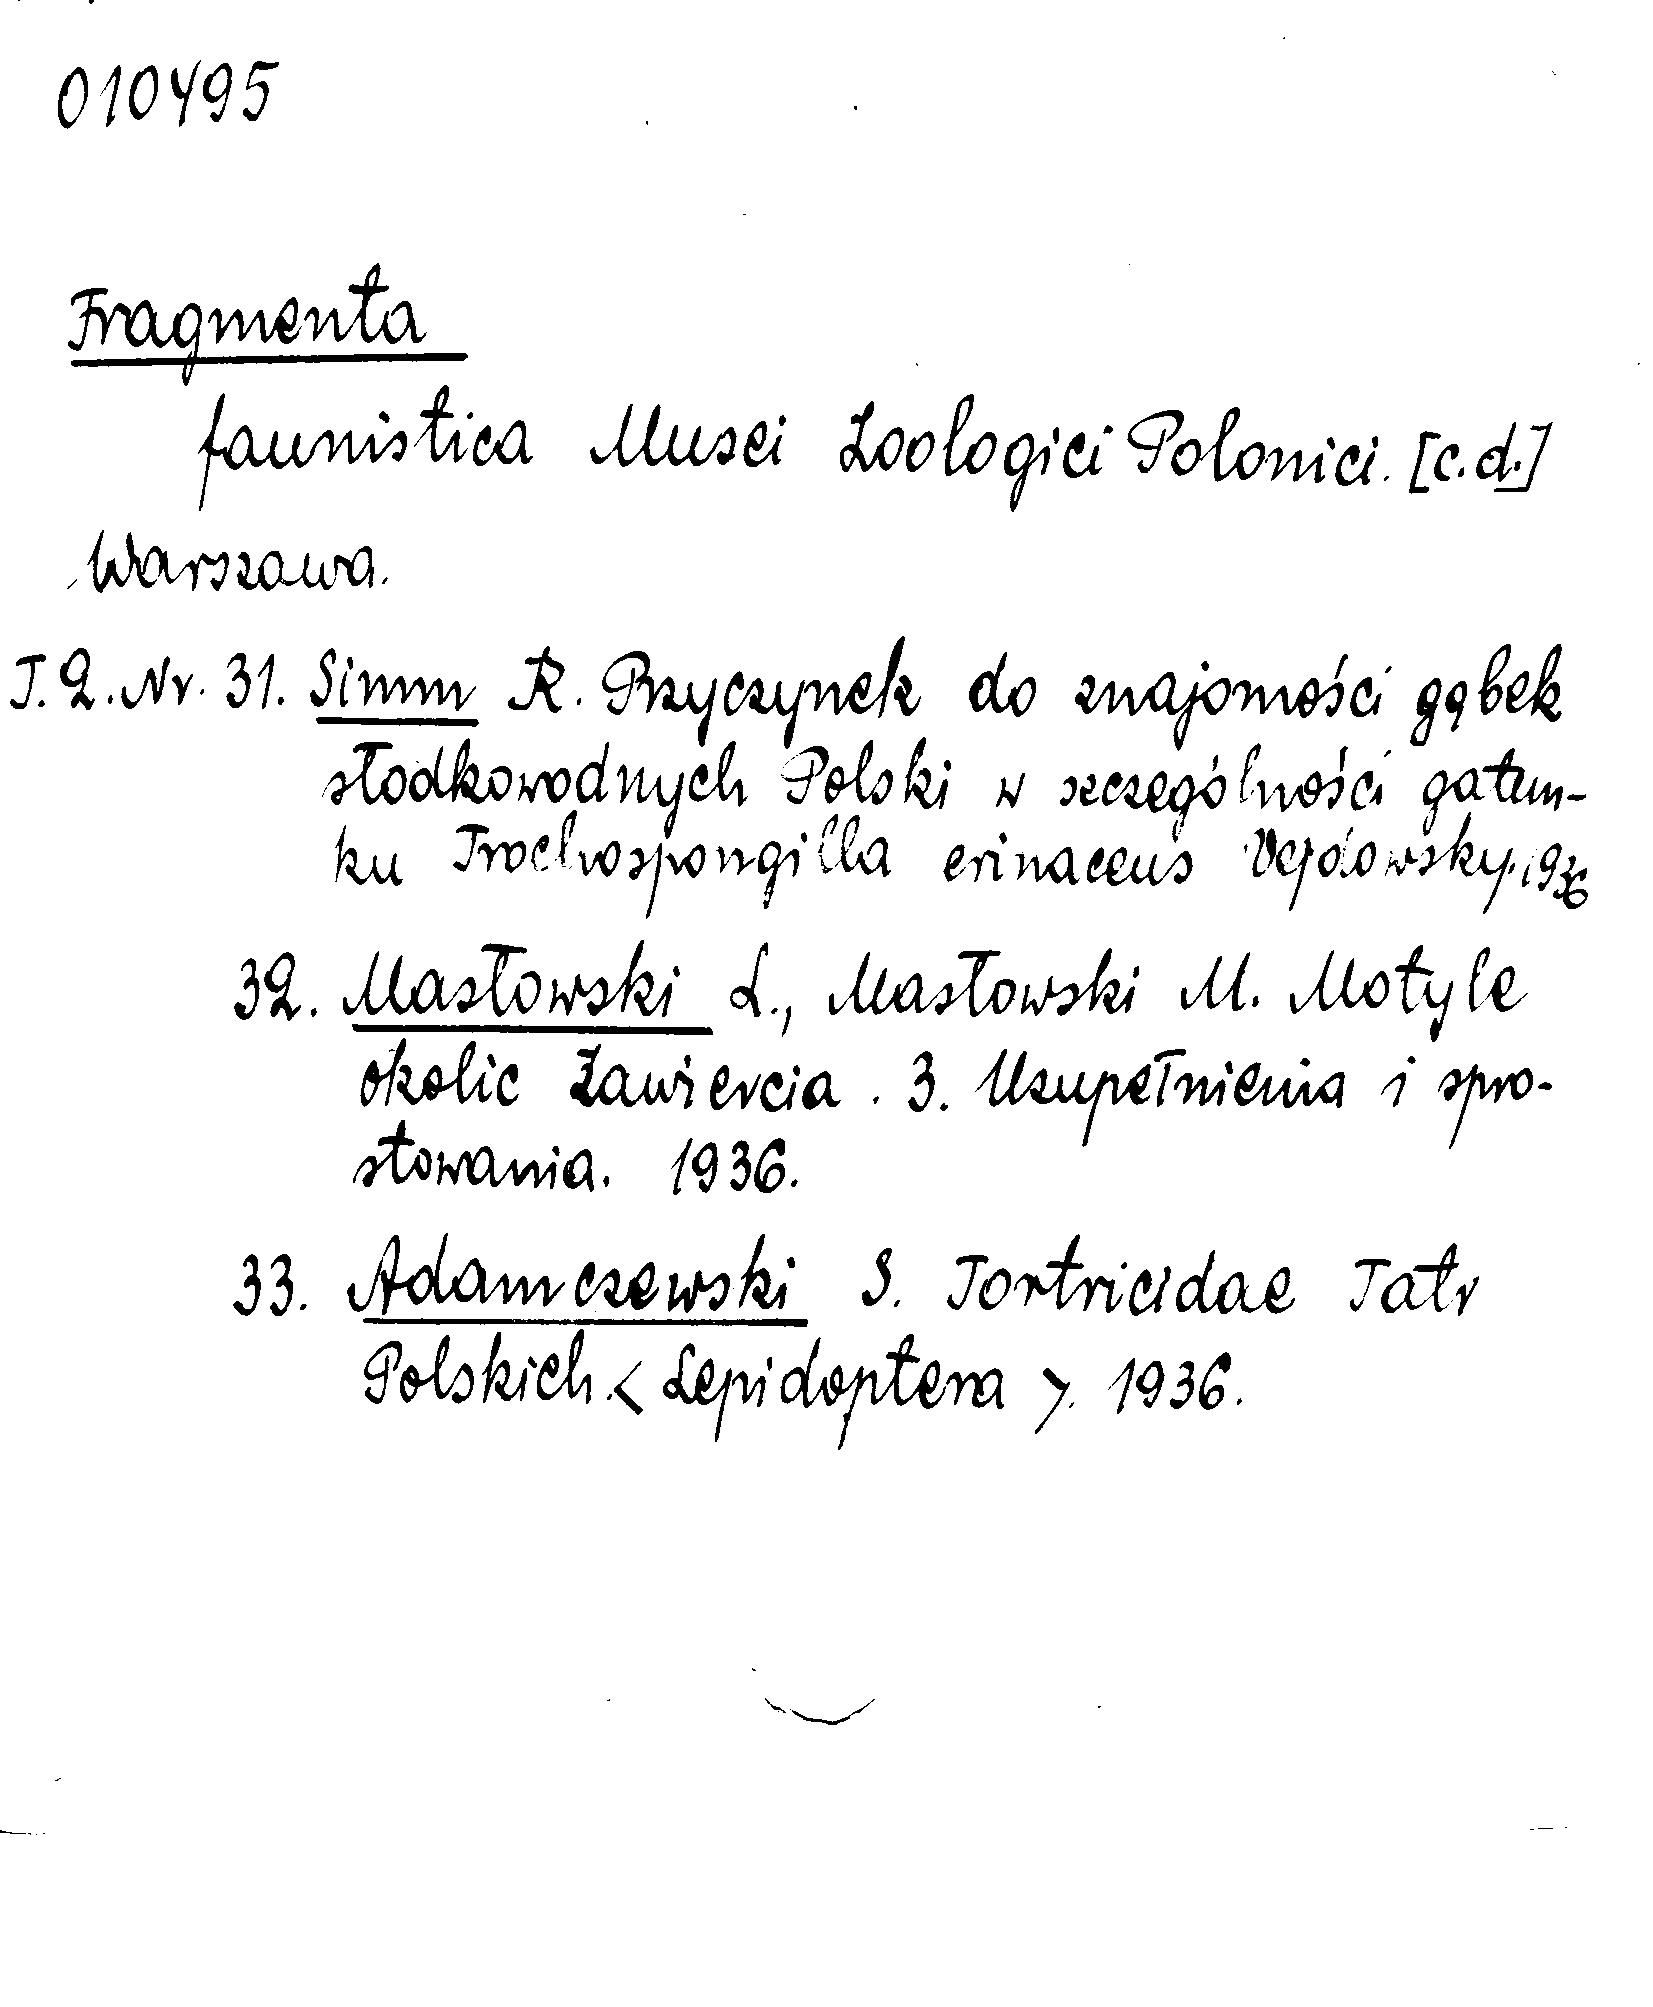 010495
Fragmenta
faunistica Musei Zoologici Polonici. [c.d.]
Warszawa.
T. 2. Nr. 31. Simm R. Przyczynek do znajomości gąbek
słodkowodnych Polski w szczególności gatun-
ku Trochospongilla erinaceus Vejdowsky. 1936
32. Masłowski L., Masłowski M. Motyle
okolic Zawiercia. 3. Uzupełnienia i spro-
stowania. 1936.
33. Adamczewski S. Tortricidae Tatr
Polskich. < Lepidoptera >. 1936.